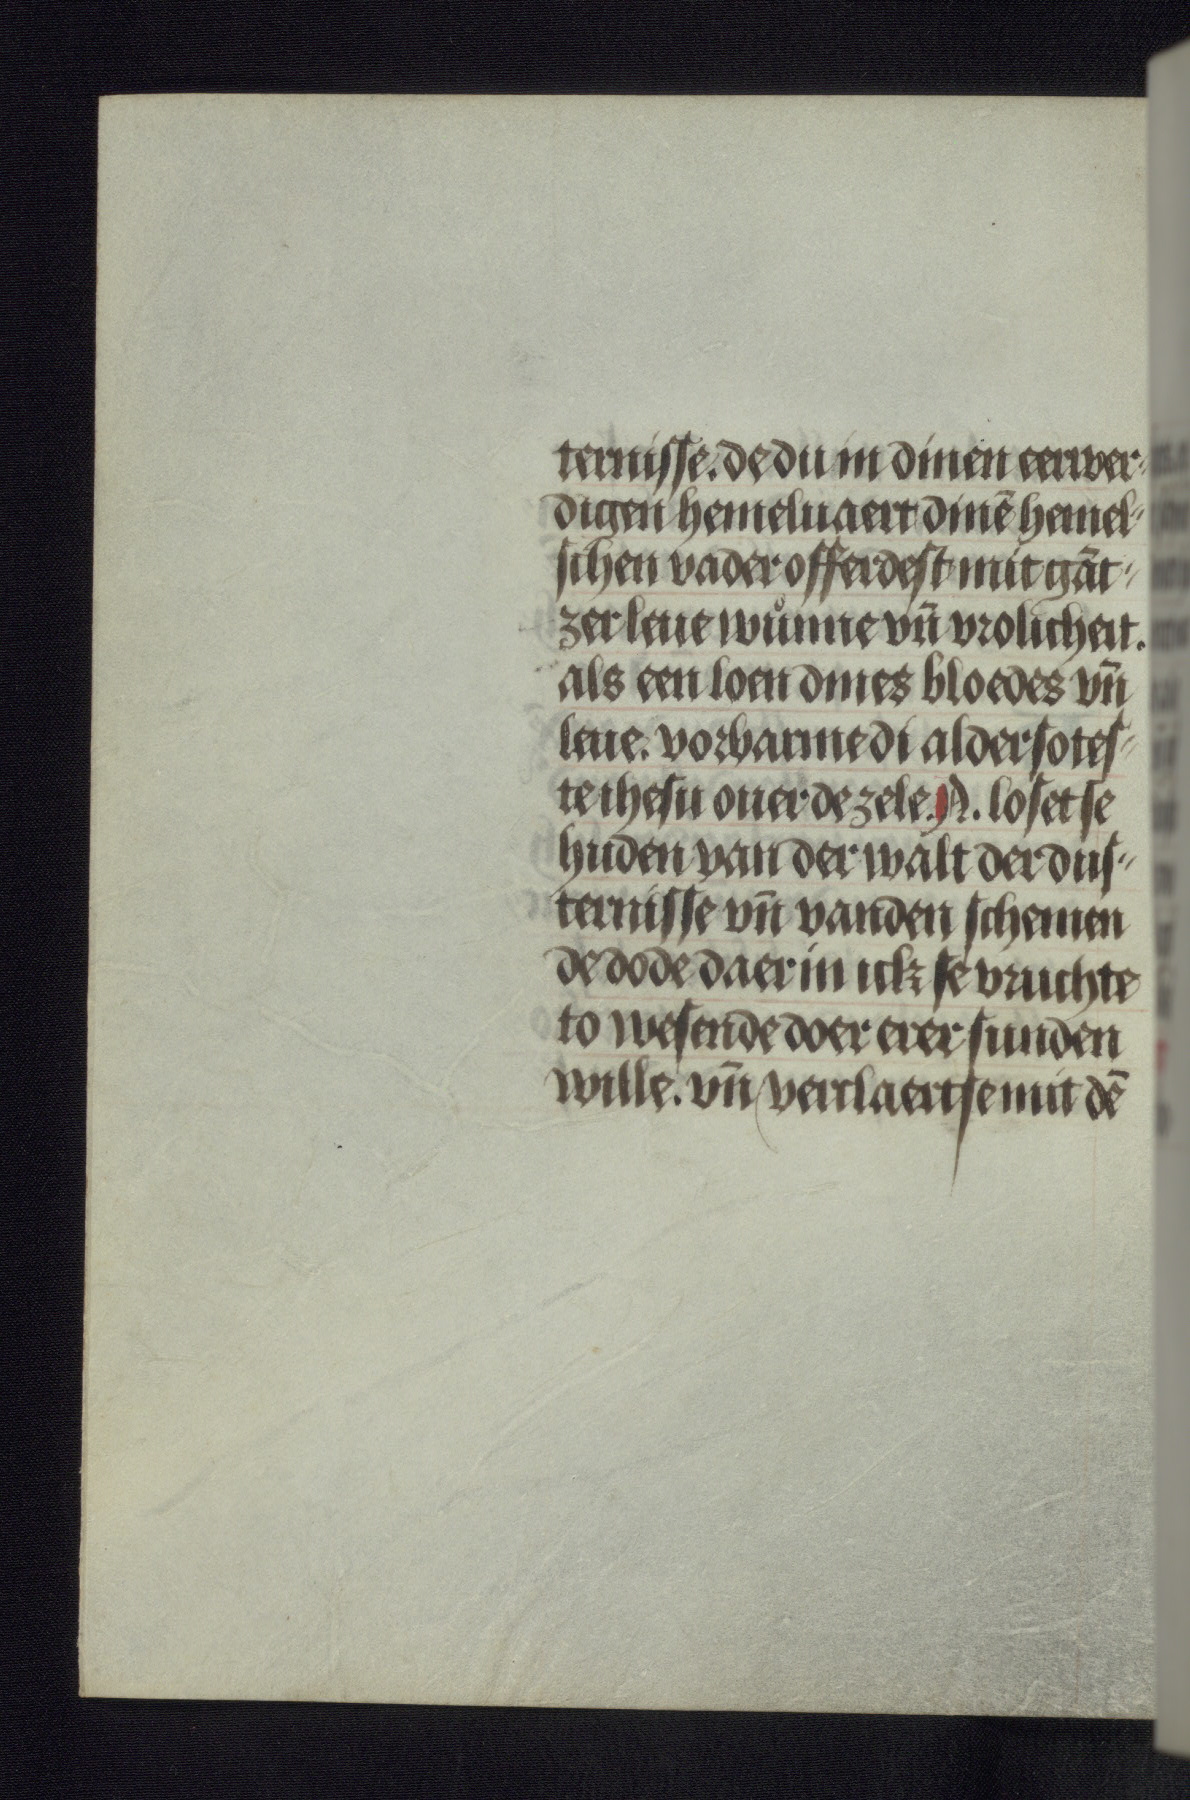 ternisse. de du in dinen eerwer-
digen hemeluaert dinē hemel-
schen vader offerdest mit gāt-
zer leue wůnne vn̄ vrolicheit.
als een loen dines bloedes vn̄
leue. vorbarme di alder sotes-
te ihesu ouer de zele. N. loset se
huden van der walt der dus-
ternisse vn̄ van den schemen
de dode daer in ick se vruchte
to wesende doer erer sunden
wille. vn̄ verclaert se mit dē